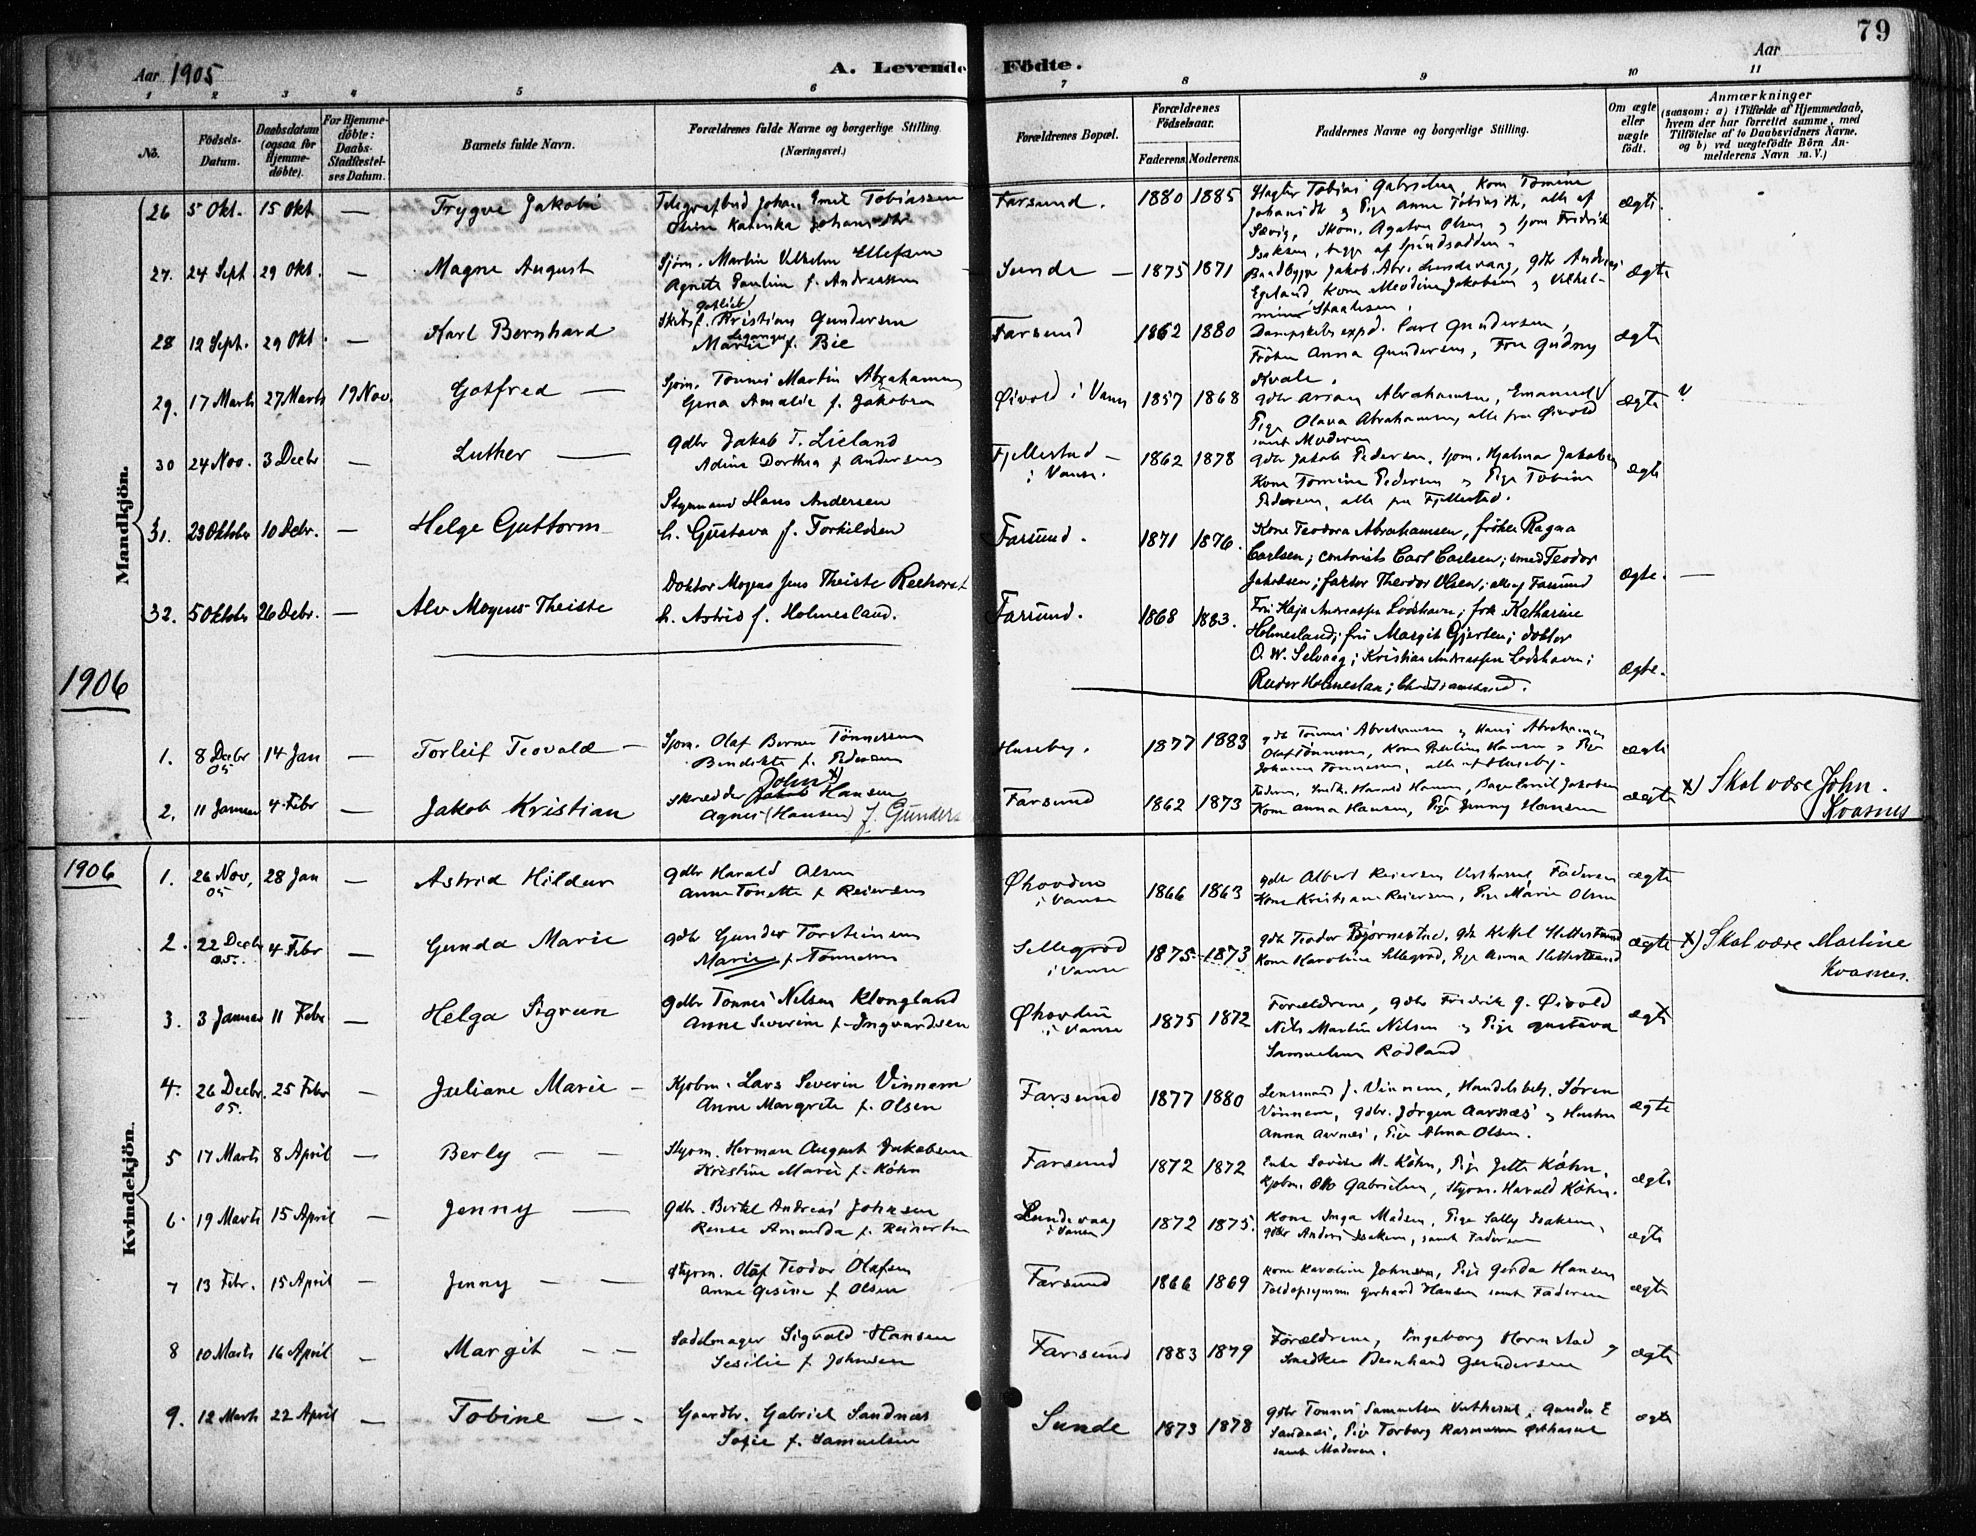 79
Aar 1905
A. Levende Födte.
Aar
1 2 3 4 5 6 7 8 9 10 11
No.
Födsels-Datum.
Daabsdatum (ogsaa for Hjemme-döbte).
For Hjemme-döbte: Daabs-Stadfæstel-ses Datum.
Barnets fulde Navn.
Forældrenes fulde Navne og borgerlige Stilling. (Næringsvei.)
Forældrenes Bopæl.
Forældrenes Födselsaar.
Faderens. Moderens.
Faddernes Navne og borgerlige Stilling.
Om ægte eller uægte födt.
Anmærkninger
(saasom: a) i Tilfælde af Hjemmedaab,
hvem der har forrettet samme, med
Tilföielse af to Daabsvidners Navne.
og b) ved uægtefödte Börn An-
melderens Navn m. V.)
Mandkjön.
26 5 Okt. 15 Okt — Trygve Jakobi
Telegrafbud Johan Emil Tobiassen
Karinka Johansdtr
Farsund. 1880 1885
Tobias Gabrielsen, Kone Tomine
Johansdtr og Pige Anne Tobiasdtr, alle af
Sævig, Skom. Agaton Olsen og Sjom Fredrik
Isaksen, begge af Spindsodden.
ægte.
27. 24 Sept 29 Okt. — Magne August
Sjöm. Martin Vilhelm Ellefsen
Agnete Pauline f. Andreassen
Sunde — 1875 1871
Baadbygger Jakob Abr. Lundevaag, gdb Andreas
Egeland, Kone Jakobsen og Vilhel-
mine
ægte
28 12 Sept. 29 Okt. — Karl Bernhard
Gotlieb
Skibsf. Kristian Gundersen
Marie f. Bie
Farsund 1862 1880
Dampskibsexped. Carl Gundersen,
Fröken Anna Gundersen, Fru Gudny
Kvale.
ægte
29. 17 Marts 27 Marts 19 Nov. Gotfred —
Sjöm. Tönnes Martin Abrahamsen
Gina Amalie f. Jakobsen
Öivold i Vanse 1857 1868
Gdbr Abrahamsen, Emanuel
Pige Olava Abrahamsen, alle fra Öivold
samt Moderen
ægte
30 24 Nov. 3 Decbr — Luther —
Gdbr Jakob T. Lieland
Adine Dorthea f Andersen
Fjellestad —
i Vanse. 1862 1878
Gdbr Jakob Pedersen, Sjom. Hjalmar Jakobsen
Kone Tomine Pedersen og Pige Tobine
Pedersen, alle fra Fjellestad.
ægte
31. 23 Oktober 10 Debr. — Helge Guttorm
Styrmand Hans Andersen
h. Gustava f. Torkildsen
Farsund. 1871 1876.
Kone Teodora Abrahamsen, fröken Ragna
Carlsen; contorist Carl Carlsen; smed Teodor
Jakobsen; faktor Theodor Olsen; alle af Farsund
ægte. —
32. 5 Oktob 26 Debr. — Alv Mogens Theiste
Doktor Mogens Jens Theiste Reehorst
h. Astrid f. Holmesland.
Farsund. 1868 1883.
Fru Kaja Andreassen Lodshavn; frk Katharine
Holmesland; fru Margit Gjertsen; doktor
O. W. Selvaag; Kristian Andreassen Lodshavn;
Reidar Holmesland; Christianssand.
ægte.
1906
1. 8 Decbr 05 14 Jan — Torleif Teovald —
Sjom. Olaf Berner Tönnessen
Bendikte f. Pedersen
Huseby. 1877 1883
gdb Tönnes Abrahamsen og Hans Abrahamsen
Olaf Tönnessen, Kone Hansen og Pige
Johanne Tönnessen, alle af Huseby.
ægte
2. 11 Januar 4 Febr — Jakob Kristian
John x)
Skrædder Jakob Hansen
Agnes (Hansen) f. Gunders
Farsund 1862 1873
Faderen, Harald Hansen, Emil Jakobsen
Kone Anna Hansen, Pige Jenny Hansen
ægte x) Skal være John.
Kvasnes
1906
Kvindekjön.
1. 26 Nov, 05 28 Jan — Astrid Hildur
gdbr Harald Olsen
Anne Tonette f Reiersen
Öhovden
i Vanse 1866 1863
gdbr Albert Reiersen Vesthassel, Faderen
Kone Kristiane Reiersen, Pige Marie Olsen
ægte
2. 22 Decbr 05. 4 Febr — Gunda Marie
gdbr Gunder Torsteinsen
Marie f. Tönnessen
Sellegrod
i Vanse 1875 1873
gdb Teodor Björnestae, gdb Ketil
Kone Karoline Sellegrod, Pige Anna
ægte x) Skal være Martine
Kvasnes.
3. 3 Januar 11 Febr — Helga Sigrun
gdbr Tönnes Nilsen Klungland
Anne Severine f. Ingvardsen
Öhovden
i Vanse 1875 1872
Forældrene, gdbr Fredrik G. Öivold
Nils Martin Nilsen og Pige Gustava
Samuelsen Rödland
ægte
4. 26 Decbr 05. 25 Febr — Juliane Marie —
Kjöbm. Lars Severin Vinnem
Anne Margrete f. Olsen
Farsund 1877 1880
Lensmand J. Vinnem, Handelsbetj. Sören
Vinnem, gdbr. Jörgen Aarnæs og Hustru
Anna Aarnæs, Pige Alma Olsen.
ægte
5 17 Marts 8 April — Berly — —
Styrm. Herman August Jakobsen
Kristine Marie f. Köhn
Farsund 1872 1872
Enke Lovise M. Köhn, Pige Jette Köhn,
Kjöbm. Otto Gabrielsen, Styrm. Harald Köhn.
ægte
6. 19 Marts 15 April — Jenny —
Gdbr. Bertel Andreas Johnsen
Rense Amanda f. Reinertsen
Lundevaag
i Vanse 1872 1875.
Kone Inga Madsen, Pige Sally Isaksen,
gdbr Anders Isaksen, samt Faderen
ægte
7 13 Febr. 15 April — Jenny — —
Styrm. Olaf Teodor Olafsen
Anne Gesine f Olsen
Farsund 1866 1869
Kone Karoline Johnsen, Pige Gerda Hansen
Toldopsynsm Gerhard Hansen samt Faderen
ægte
8 10 Marts 16 April — Margit — —
Sadelmager Sigvald Hansen
Sesilie f Johnsen
Farsund 1883 1879
Forældrene, Ingeborg Hornstad og
Snedker Bernhard Gundersen
ægte
9. 12 Marts 22 April — Tobine — —
Gaardbr. Gabriel Sandnæs
Sofie f. Samuelsen
Sunde 1873 1878
gdbr Tönnes Samuelsen Vesthassel, Gunder E
Sandnæs, Pige Torborg Rasmussen Östhassel
samt Moderen.
ægte